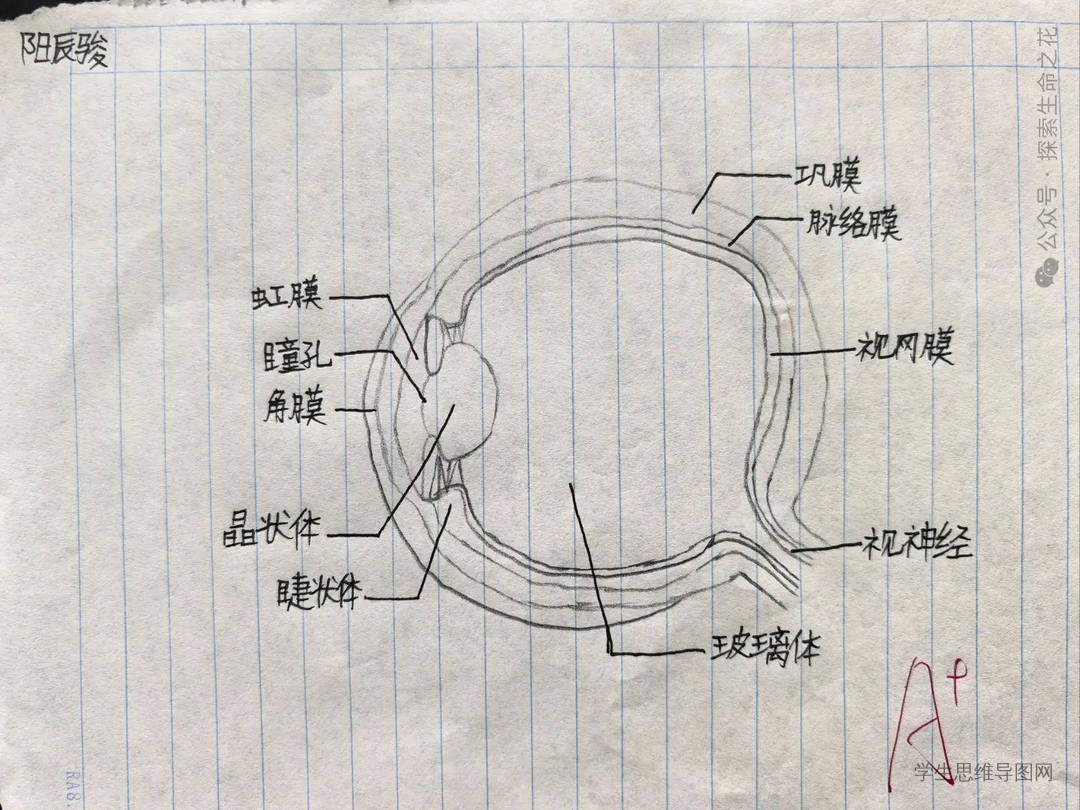 阳辰骏
公众号·探索生命之花
巩膜
脉络膜
虹膜
视网膜
瞳孔
角膜
晶状体
视神经
睫状体
玻璃体
A+
学生思维导图网
RA8.